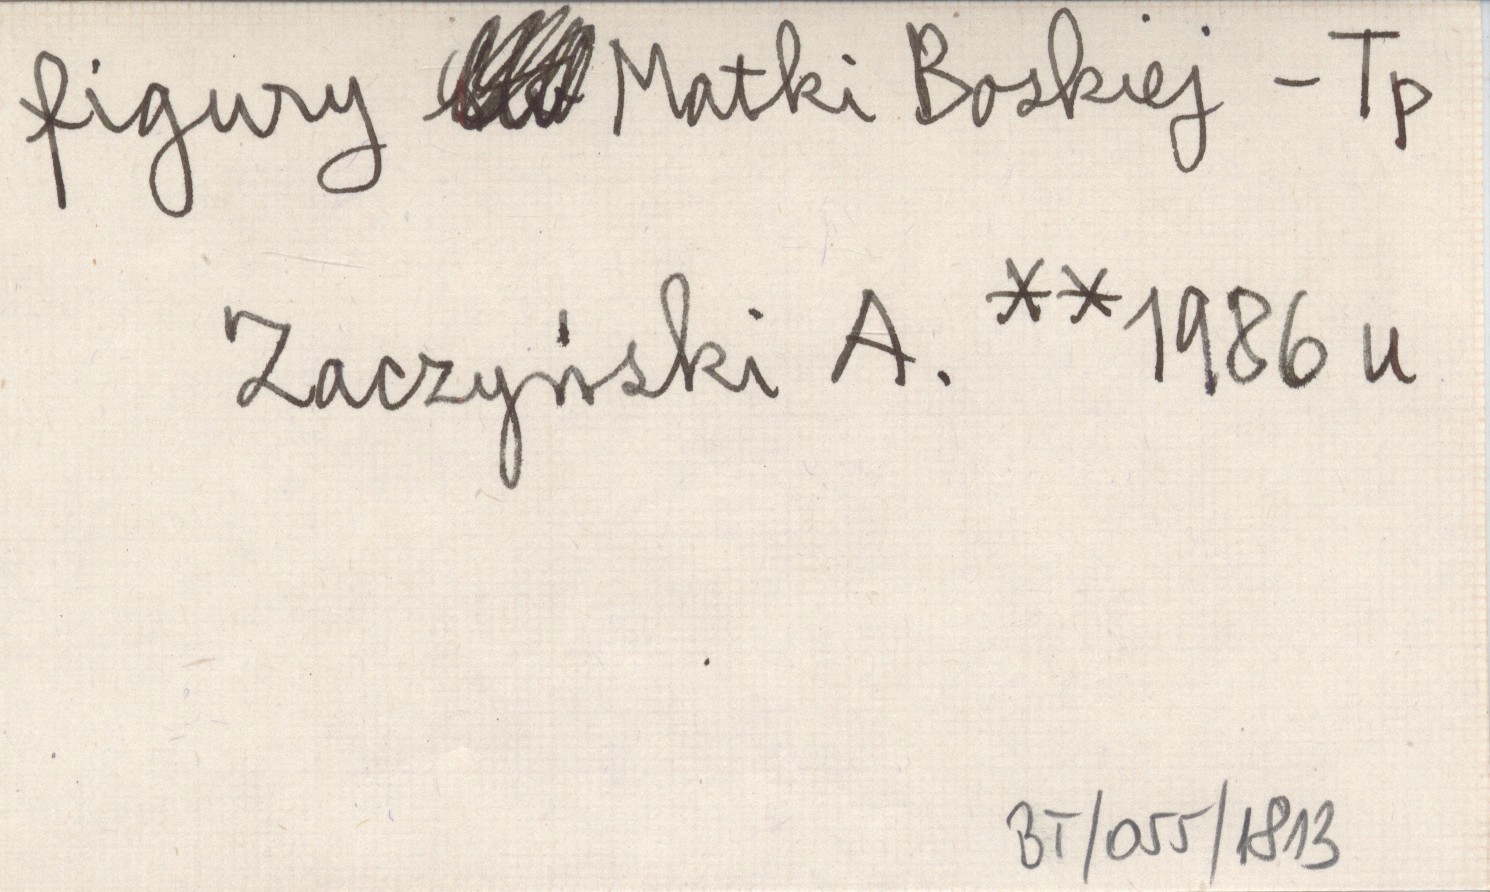 figury Matki Boskiej - Tp
Zaczyński A. **1986 u
BT/055/1813